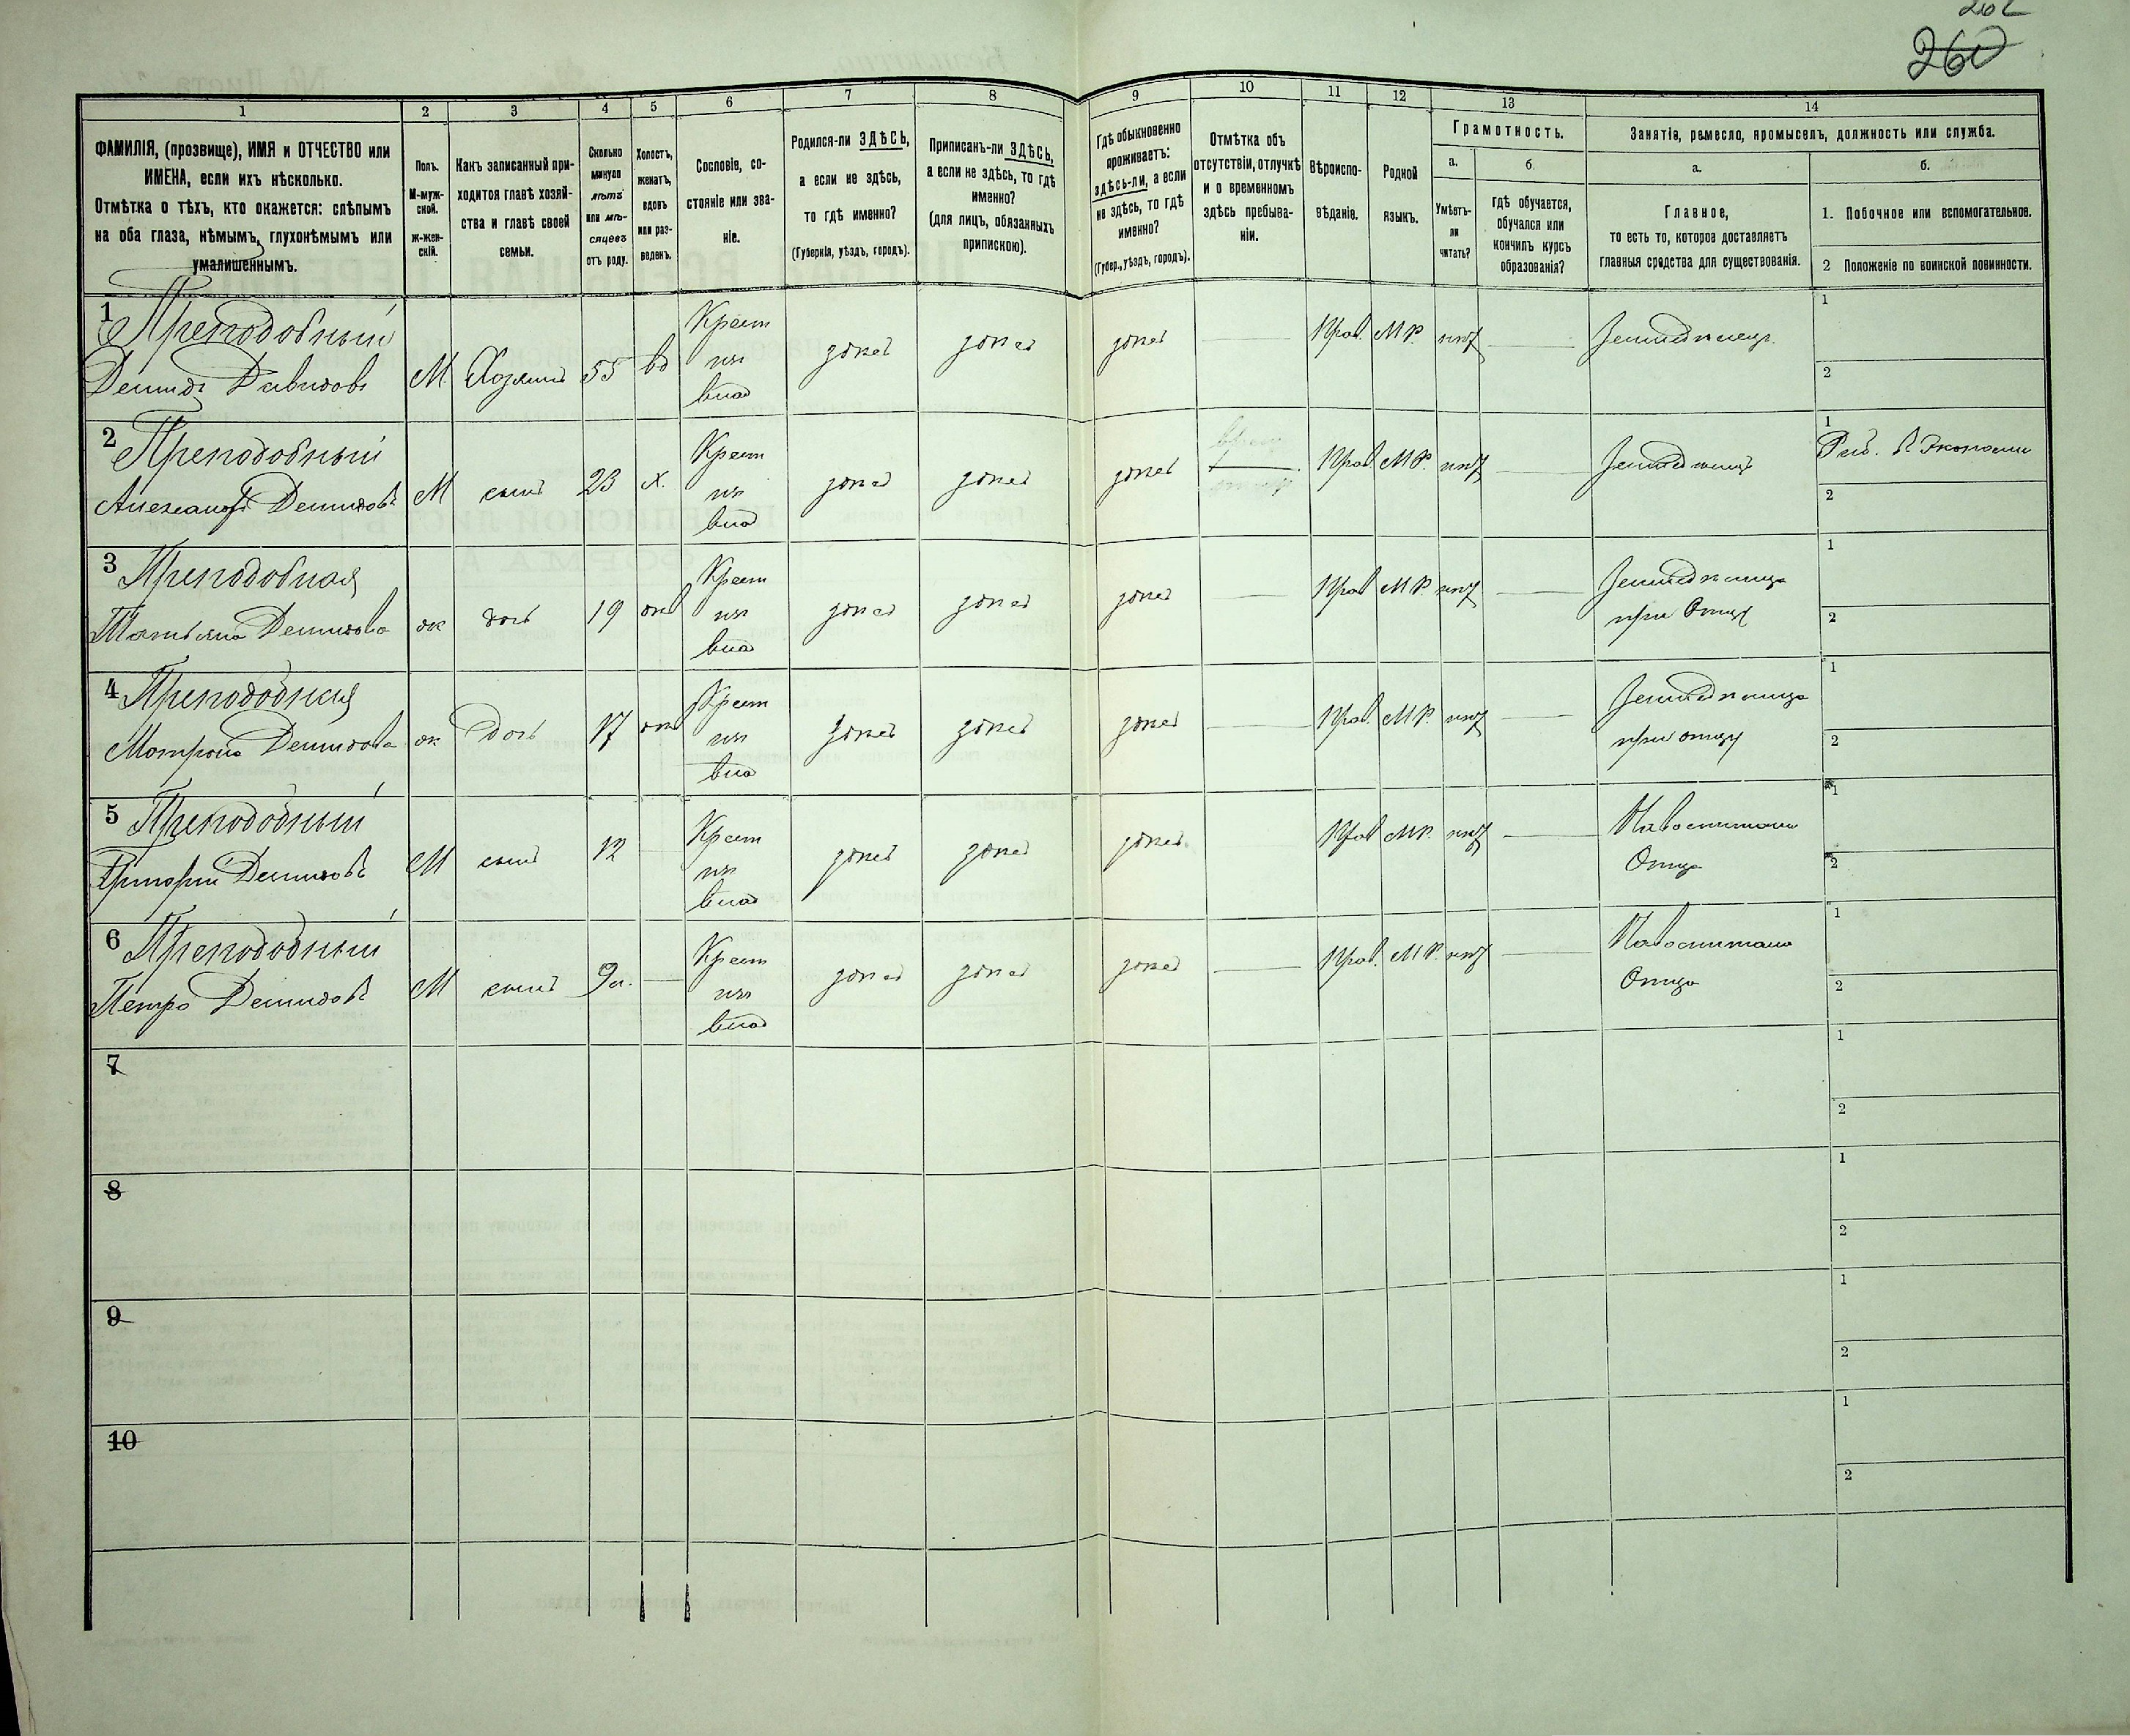 260
1 2 3 4 5 6 7 8 9 10 11 12 13 14
ФАМИЛІЯ, (прозвище), ИМЯ и ОТЧЕСТВО или
ИМЕНА, если ихъ нѣсколько.
Отмѣтка о тѣхъ, кто окажется: слѣпымъ
на оба глаза, нѣмымъ, глухонѣмымъ или
умалишеннымъ.
Полъ.
М-муж-
ской.
ж-жен-
скій.
Какъ записанный при-
ходится главѣ хозяй-
ства и главѣ своей
семьи.
Сколько
минуло
лѣтъ
или мѣ-
сяцевъ
отъ роду.
Холостъ,
женатъ,
вдовъ
или раз-
веденъ.
Сословіе, со-
стояніе или зва-
ніе.
Родился-ли ЗДѢСЬ,
а если не здѣсь,
то гдѣ именно?
(Губернія, уѣздъ, городъ).
Приписанъ-ли ЗДѢСЬ,
а если не здѣсь, то гдѣ
именно?
(для лицъ, обязанныхъ
припискою).
Гдѣ обыкновенно
проживаетъ:
здѣсь-ли, а если
не здѣсь, то гдѣ
именно?
(Губер., уѣздъ, городъ).
Отмѣтка объ
отсутствіи, отлучкѣ
и о временномъ
здѣсь пребыва-
ніи.
Вѣроиспо-
вѣданіе.
Родной
языкъ.
Грамотность.
а.
Умѣетъ-
ли
читать?
б.
гдѣ обучается,
обучался или
кончилъ курсъ
образованія?
Занятіе, ремесло, промыселъ, должность или служба.
а.
Главное,
то есть то, которое доставляетъ
главныя средства для существованія.
б.
1. Побочное или вспомогательное.
2 Положеніе по воинской повинности.
1 Преподобный
Демидъ Давидовъ
М Хозяинъ 55 вд
Крест
из
влад
здесь здесь здесь — Прав. МР. нет — Земледелецъ
1
2
2 Преподобный
Александръ Демидовъ
М сынъ 23 х.
Крест
из
влад
здесь здесь здесь Прав. МР. нет —
1 Раб. в Экономии
2
3 Преподобная
Татьяна Демидова
ж дочь 19
Крест
из
влад
здесь здесь здесь — Прав МР. нет —
при Отце
1
2
4 Преподобная
Мотрона Демидова
ж Дочь 17
Крест
из
влад
здесь здесь здесь — Прав. МР. нет —
при отце
1
2
5 Преподобный
Григорий Демидовъ
М сынъ 12 —
Крест
из
влад
здесь здесь здесь Прав МР. нет —
Отца
1
2
6 Преподобный
Петро Демидовъ
М сынъ 9 л. —
Крест
из
влад
здесь здесь здесь — Прав. МР. нет —
Отца
1
2
7
1
2
8
1
2
9
1
2
10
1
2